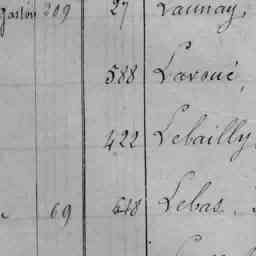 Gaston 209 27 Launay,
588 Lavoué,
422 Lebailly
69 618 Lebas.